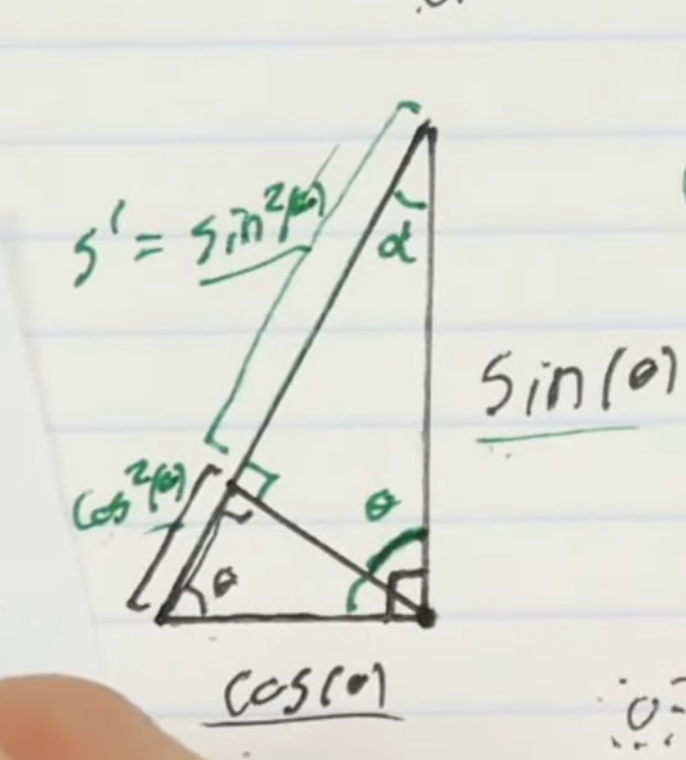 s' = sin²(θ)
α
sin(θ)
cos²(θ)
θ
θ
cos(θ)